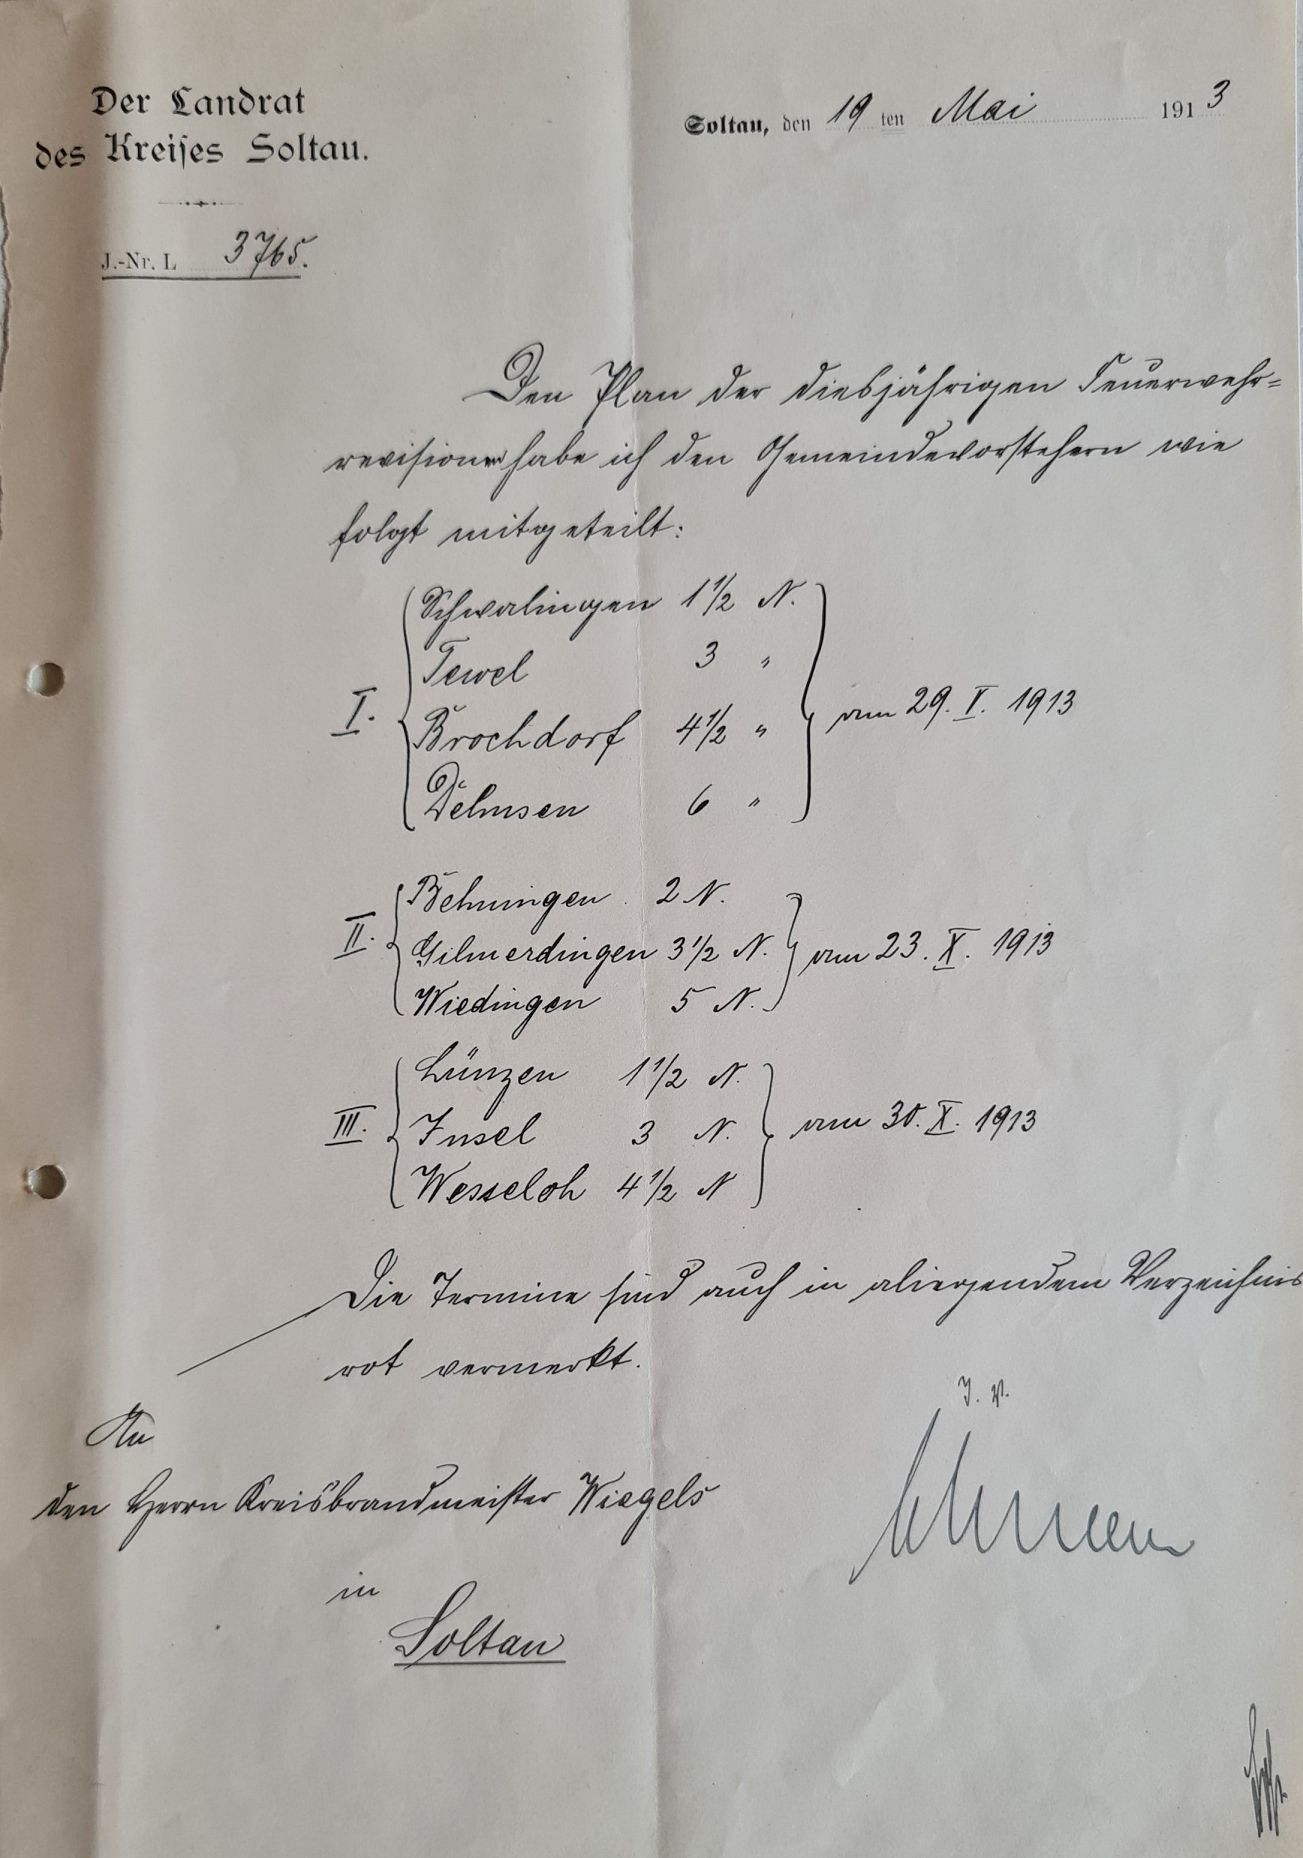 Der Landrat
des Kreises Soltau.
Soltau, den 19 ten Mai 1913
J.-Nr. L 3765.
Den Plan der diesjährigen Feuerwehr=
revisionen habe ich den Gemeindevorstehern wie
folgt mitgeteilt:
I. Schwalingen 1 1/2 N.
Tewel 3 "
Brochdorf 4 1/2 "
Delmsen 6 "
am 29. V. 1913
II. Behningen 2 N.
Gilmerdingen 3 1/2 N.
Wiedingen 5 N.
am 23. X. 1913
III. Lünzen 1 1/2 N.
Insel 3 N.
Wesseloh 4 1/2 N
am 30. X. 1913
Die Termine sind auch in anliegendem Verzeichnis
rot vermerkt.
I. V.
An
den Herrn Kreisbrandmeister Wiegels
in
Soltau